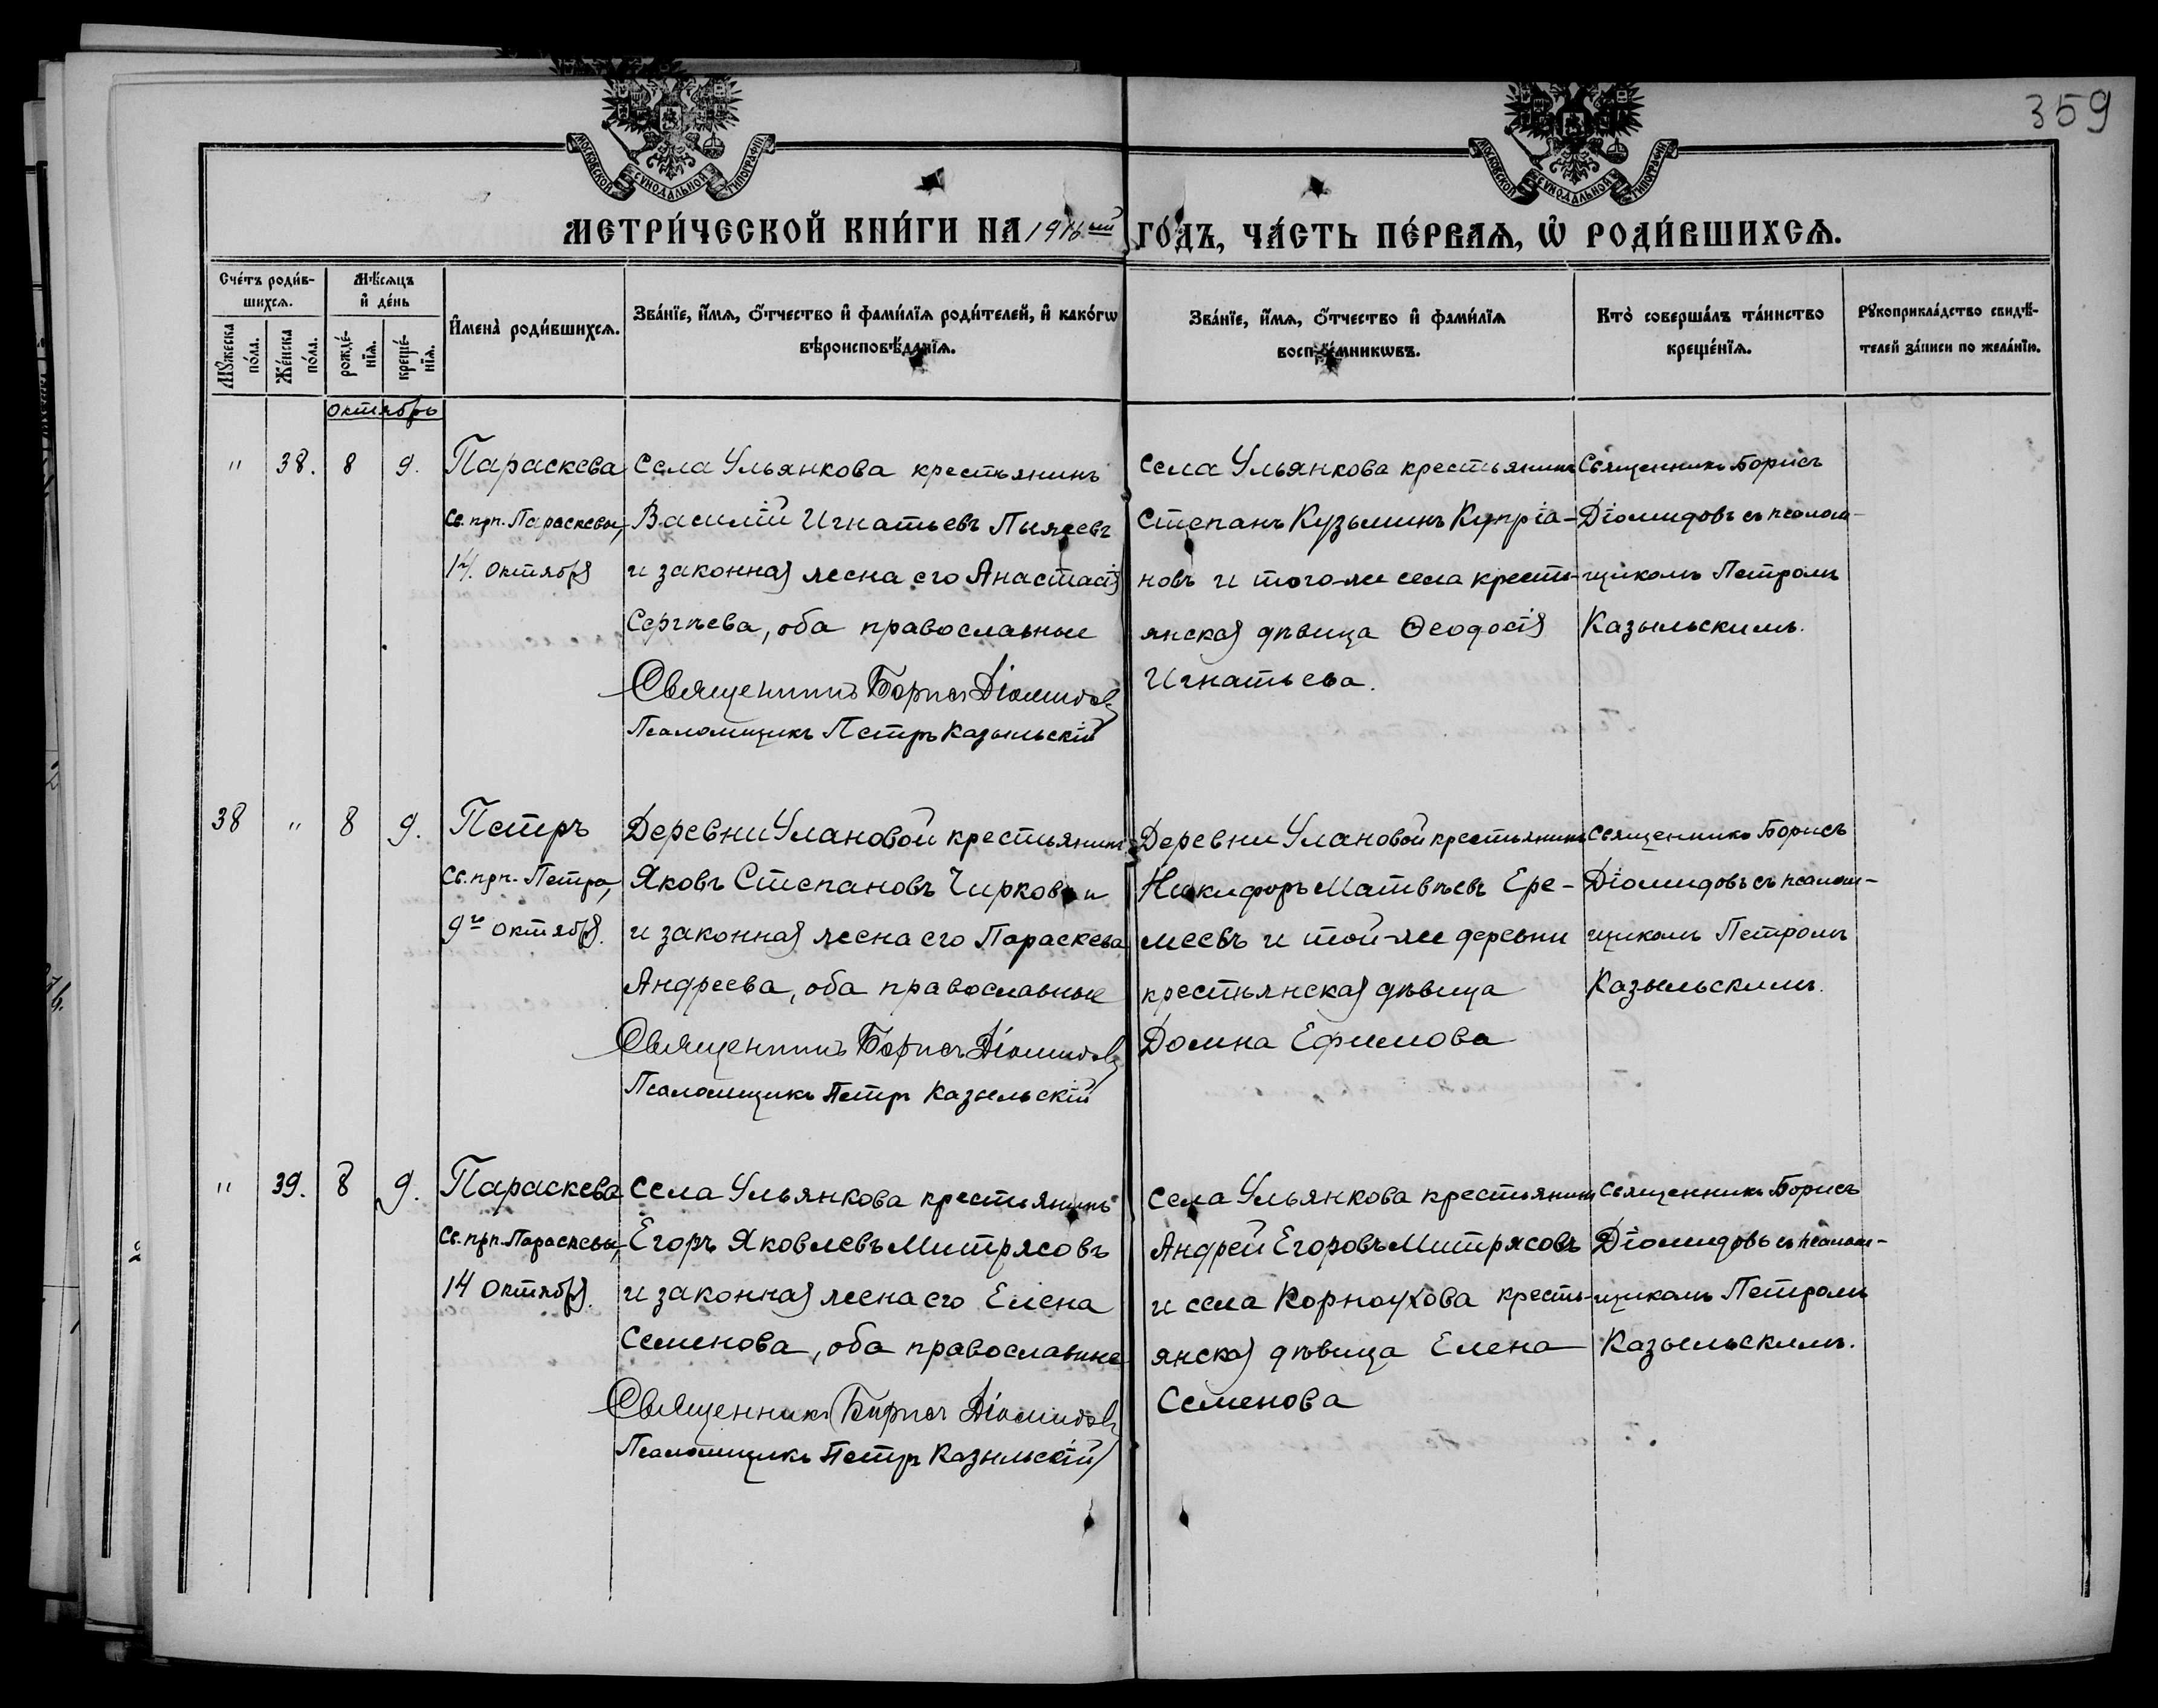 359
МОСКОВСКОЙ СѴНОДАЛЬНОЙ ТИПОГРАФІИ
МОСКОВСКОЙ СѴНОДАЛЬНОЙ ТИПОГРАФІИ
МЕТРИ́ЧЕСКОЙ КНИ́ГИ НА 1916ый ГО́ДЪ, ЧА́СТЬ ПЕ́РВАѦ, Ѡ҆ РОДИ́ВШИХСѦ.
Сче́тъ роди́в-
шихсѧ.
Мꙋ́жеска
по́ла.
Же́нска
по́ла.
Мѣ́сѧцъ
и҆ де́нь
рожде́-
нїѧ.
креще́-
нїѧ.
И҆мена̀ роди́вшихсѧ.
Зва́нїе, и҆́мѧ, ѻ҆́тчество и҆ фами́лїѧ роди́телей, и҆ како́гѡ
вѣроисповѣ́данїѧ.
Зва́нїе, и҆́мѧ, ѻ҆́тчество и҆ фами́лїѧ
воспрїе́мникѡвъ.
Кто̀ соверша́лъ та́инство
креще́нїѧ.
Рꙋкоприкла́дство свидѣ́-
телей за́писи по жела́нїю.
Октябрь
" 38. 8 9.
Параскева
Св. прп. Параскевы,
14. Октября
Села Ульянкова крестьянинъ
Василій Игнатьевъ Пыжеевъ
и законная жена его Анастасія
Сергѣева, оба православные
Священникъ Борисъ Діомидовъ
Псаломщикъ Петръ Казыльскій
Села Ульянкова крестьянинъ
Степанъ Кузьминъ Купріа-
новъ и того-же села кресть-
янская дѣвица Ѳеодосія
Игнатьева.
Священникъ Борисъ
Діомидовъ съ псалом-
щикомъ Петромъ
Казыльскимъ.
38 " 8 9.
Петръ
Св. прп. Петра,
9го Октября.
Деревни Улановой крестьянинъ
Яковъ Степановъ Чирковъ и
и законная жена его Параскева
Андреева, оба православные
Священникъ Борисъ Діомидовъ
Псаломщикъ Петръ Казыльскій
Деревни Улановой крестьянинъ
Никифоръ Матвѣевъ Ере-
меевъ и той-же деревни
крестьянская дѣвица
Домна Ефимова
Священникъ Борисъ
Діомидовъ съ псалом-
щикомъ Петромъ
Казыльскимъ.
" 39. 8 9.
Параскева
Св. прп. Параскевы,
14 Октября.
Села Ульянкова крестьянинъ
Егоръ Яковлевъ Митрясовъ
и законная жена его Елена
Семенова, оба православные
Священникъ Борисъ Діомидовъ
Псаломщикъ Петръ Казыльскій
Села Ульянкова крестьянинъ
Андрей Егоровъ Митрясовъ
и села Корноухова кресть-
янская дѣвица Елена
Семенова
Священникъ Борисъ
Діомидовъ съ псалом-
щикомъ Петромъ
Казыльскимъ.